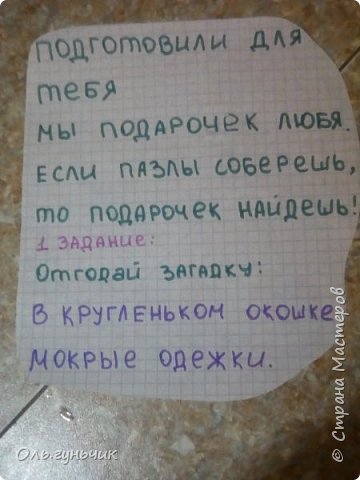 ПОДГОТОВИЛИ ДЛЯ
ТЕБЯ
МЫ ПОДАРОЧЕК ЛЮБЯ.
ЕСЛИ ПАЗЛЫ СОБЕРЕШЬ,
ТО ПОДАРОЧЕК НАЙДЕШЬ!
1 ЗАДАНИЕ:
ОТГОДАЙ ЗАГАДКУ:
В КРУГЛЕНЬКОМ ОКОШКЕ
МОКРЫЕ ОДЕЖКИ.
Оль.гуньчик
© Страна Мастеров